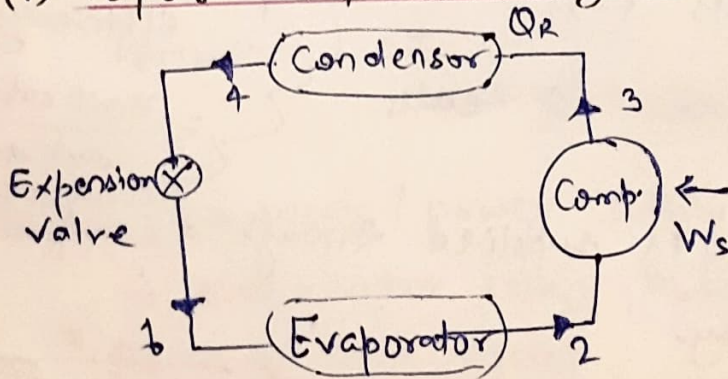 QR
Condensor
4
3
Expension
Valve
Comp.
Ws
1
Evaporator
2